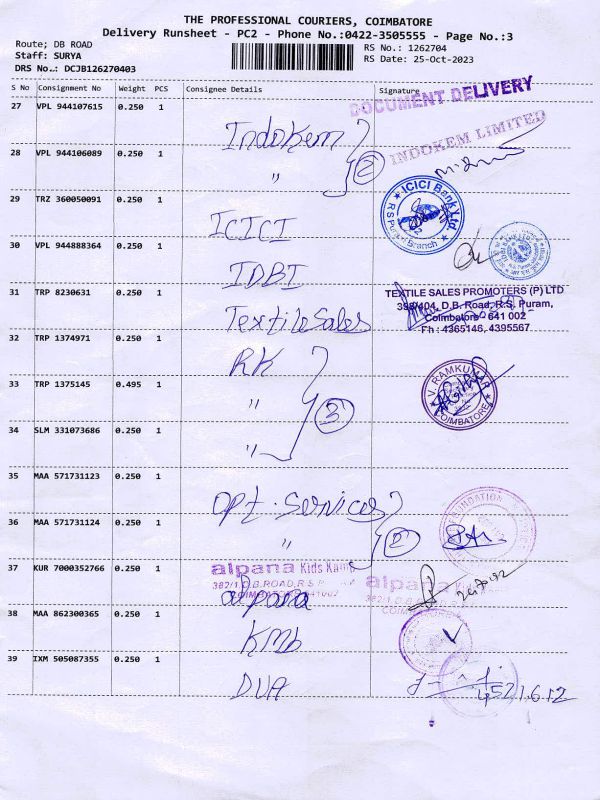 THE PROFESSIONAL COURIERS, COIMBATORE
Delivery Runsheet - PC2 - Phone No.:0422-3505555 - Page No.:3
Route; DB ROAD
Staff: SURYA
DRS No.: DCJB126270403
RS No.: 1262704
RS Date: 25-Oct-2023
S No Consignment No Weight PCS Consignee Details Signature
DOCUMENT DELIVERY
27 VPL 944107615 0.250 1 Indokem
INDOKEM LIMITED
28 VPL 944106089 0.250 1 " 2
29 TRZ 360050091 0.250 1 ICICI
ICICI Bank Ltd.
R S Puram Branch
30 VPL 944888364 0.250 1 IDBI
31 TRP 8230631 0.250 1 Textile Sales
TEXTILE SALES PROMOTERS (P) LTD
D.B. Road, R.S. Puram,
Coimbatore - 641 002
Ph : 4365146, 4395567
32 TRP 1374971 0.250 1 RK
V. RAMKUMAR
COIMBATORE
33 TRP 1375145 0.495 1 " 3
34 SLM 331073686 0.250 1 "
35 MAA 571731123 0.250 1 opt. services
36 MAA 571731124 0.250 1 " 2
FOUNDATION
37 KUR 7000352766 0.250 1 alpana
alpana Kids Kamp
382/1, D.B.ROAD, R.S.
COIMBATORE 641002
alpana Kids
38 MAA 862300365 0.250 1 KMb
39 IXM 505087355 0.250 1 DUA